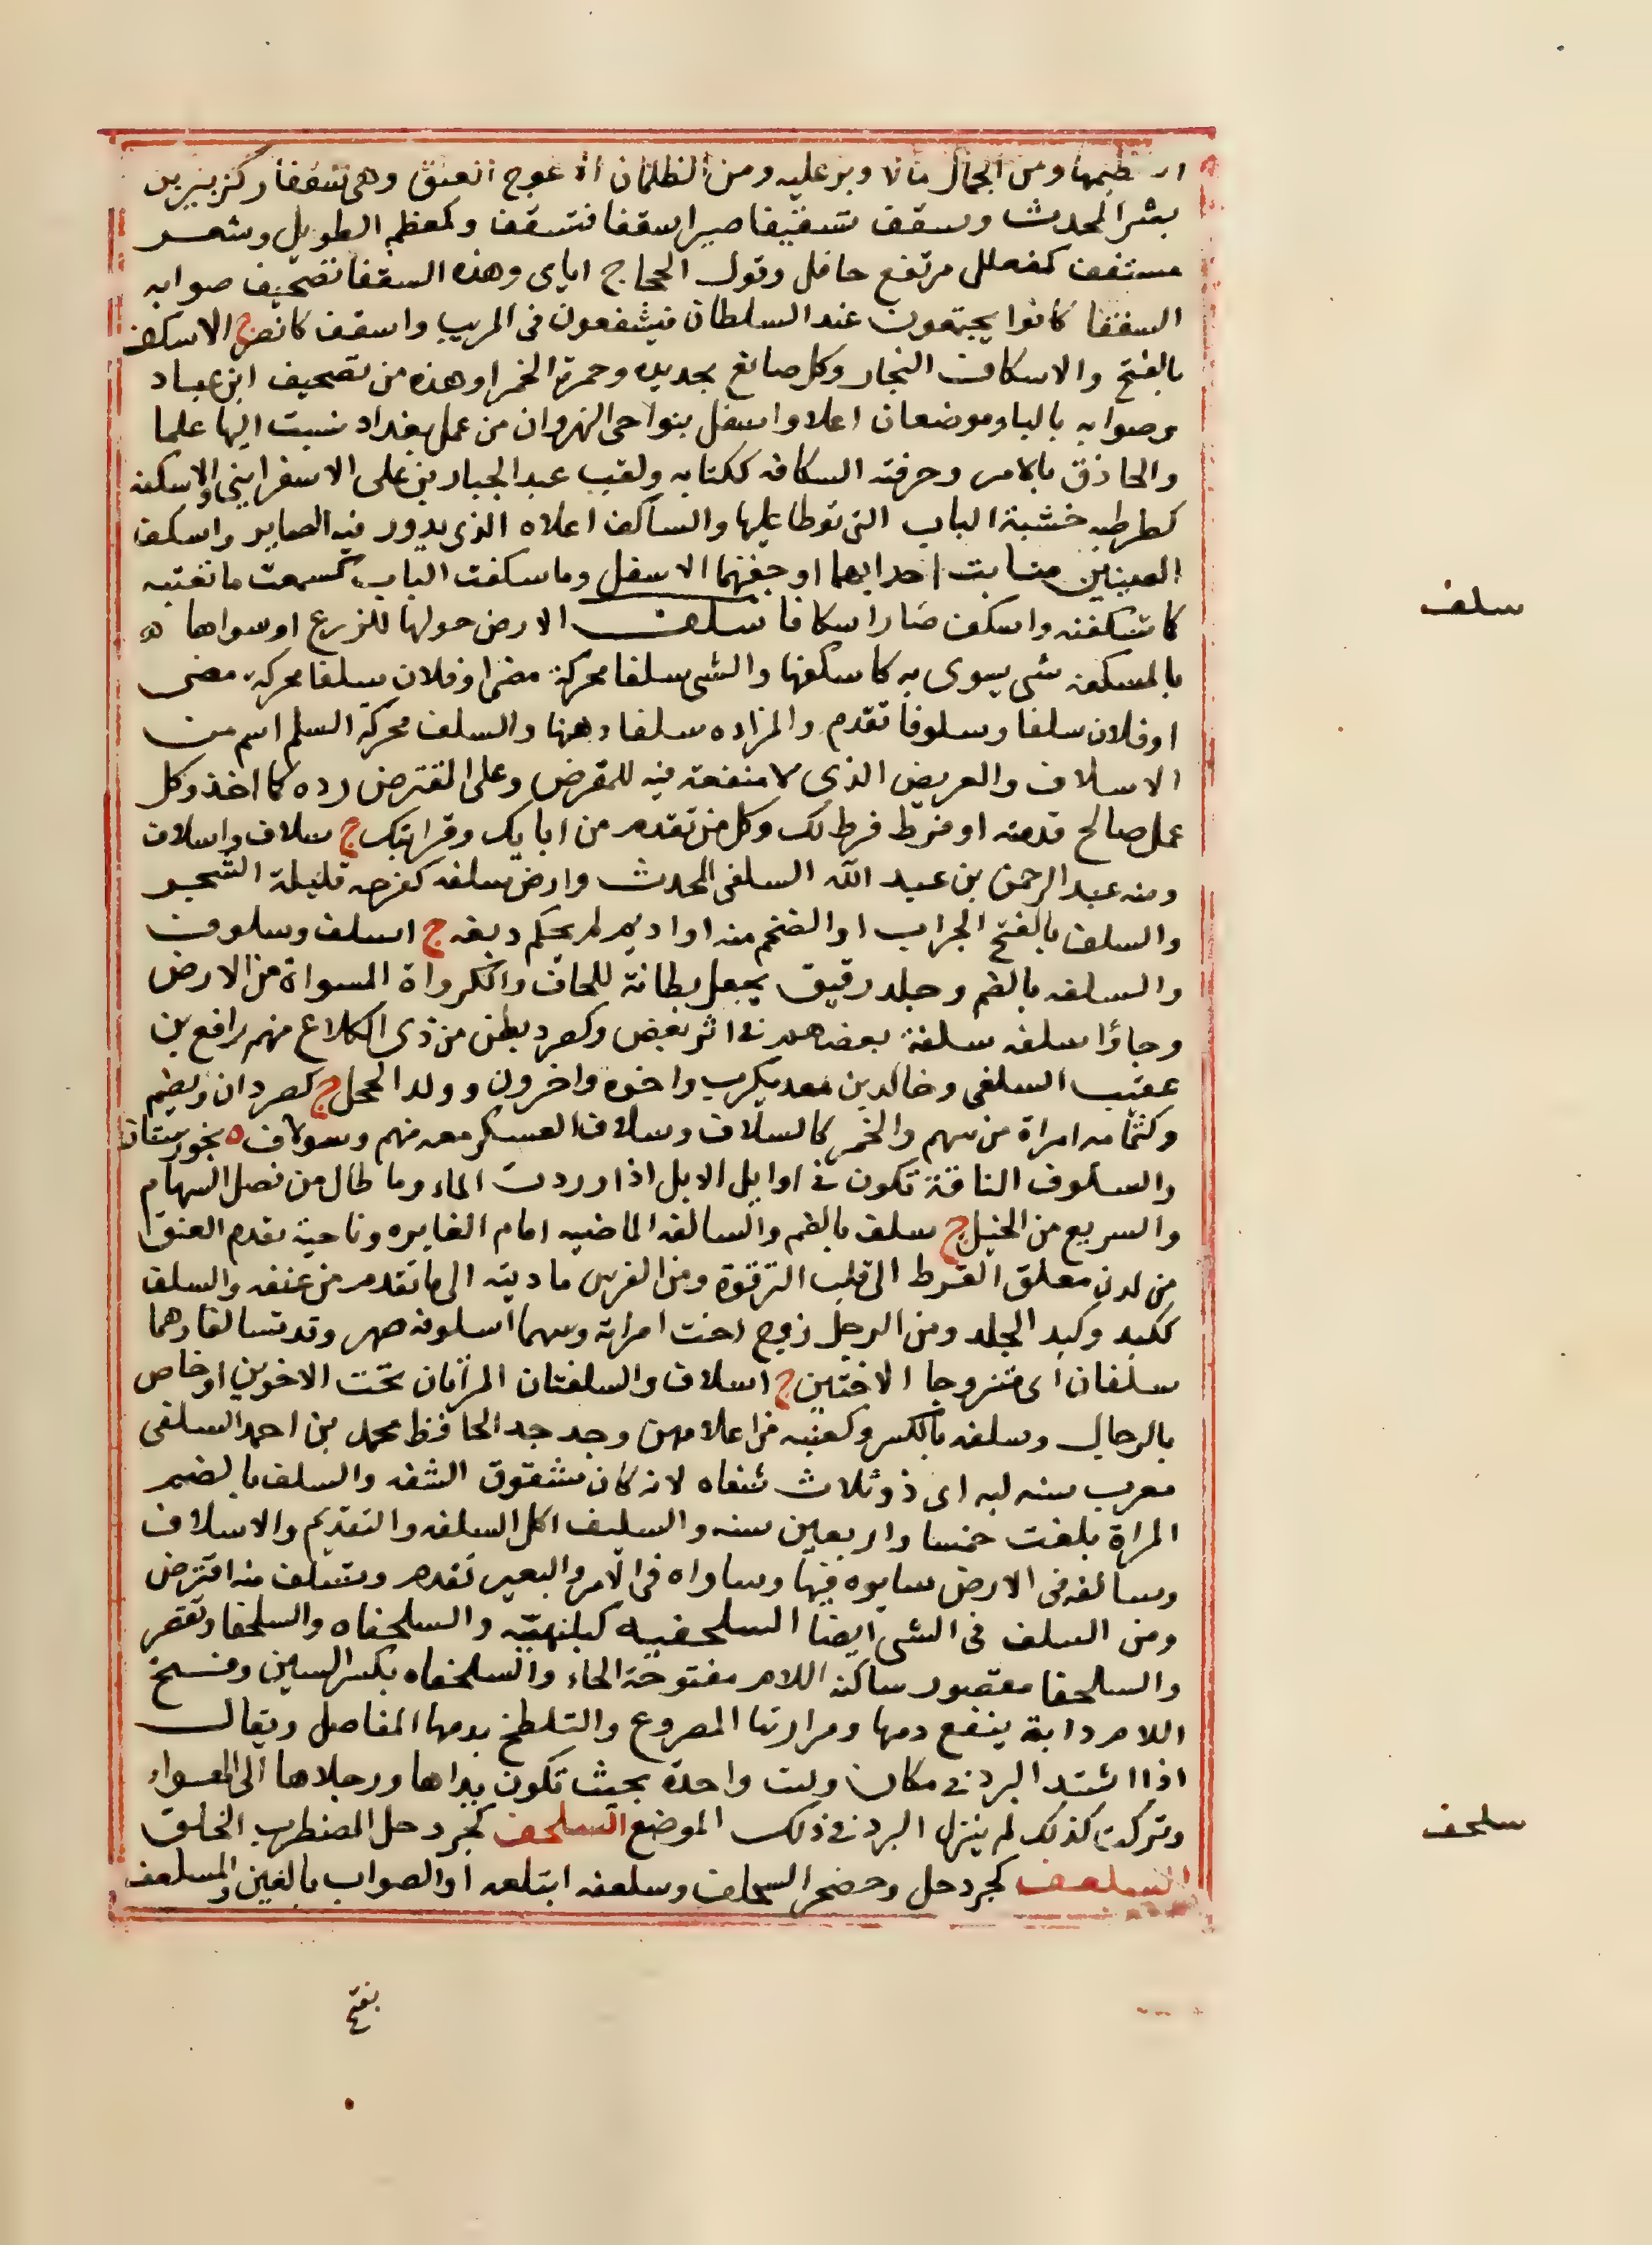 ومن الجمال مالا وبر عليه ومن الظلمان الاعوج العنق وهى سقفا وكزبير بن
بشر المحدث وسقف تسقيفا صير اسقفا فتسقف وكمعظم الطويل وشعر
مستقف كفعلل مرتفع حافل وقول الحجاج اياى وهذه السقفا تصحيف صوابه
الشفعا كانوا يجتمعون عند السلطان فيشفعون فى المريب واسقف كانصر ج الاسكف
بالفتح والاسكاف النجار وكل صانع بحديده وحمرة الخمر او هذه من تصحيف ابن عباد
وصوابه بالباء وموضعان اعلا واسفل بنواحى النهروان من عمل بغداد نسبت اليها علما
والحاذق بالامر وحرفته السكافه ككتابه ولقب عبد الجبار بن على الاسفراينى والاسكفه
كطرطبه خشبة الباب التى توطا عليها والساكف اعلاه الذى يدور فيه الصاير واسكف
العينين منابت اهدابهما او جفنهما الاسفل وما سكفت الباب كسمعت ما تعتبه
كا تسكفته واسكف صار اسكافا سلف الارض حولها للزرع او سواها ه
بالمسلفه شى يسوى به كا سلفها والشى سلفا محركة مضى او فلان سلفا محركه مضى
او فلان سلفا وسلوفا تقدم والمزاده سلفا دهنها والسلف محركة السلم اسم من
الاسلاف والعريض الذى لا منفعته فيه للمقرض وعلى المقترض رده كما اخذ وكل
عمل صالح قدمته او فرط فرط لك وكل من تقدمك من ابايك وقرابتك ج سلاف واسلاف
ومنه عبد الرحمن بن عبد الله السلفى المحدث وارض سلفه كفرحه قليلة الشجر
والسلف بالفتح الجراب او الضخم منه او اديم لم يحكم دبغه ج اسلف وسلوف
والسلفه بالضم وجلد رقيق يجعل بطانة للحاف والكرواة المسواة من الارض
وجاؤا سلفه سلفة بعضهم فى اثر بعض وكصرد بطن من ذى الكلاع منهم رافع بن
عقيب السلفى وخالد بن معديكرب واخوه واخرون وولد الحجل ج كصردان ويضم
وكثمامه امراة من سهم والخمر كالسلاف وسلاف العسكر معه منهم وسولاف ه بخوزستان
والسلوف الناقة تكون فى اوايل الابل اذا وردت الماء وما طال من نصل السهام
والسريع من الخيل ج سلف بالضم والسالفه الماضيه امام الغابره وناحية مقدم العنق
من لدن معلق القرط الى قلب الترقوة ومن الفرس هاديته الى ما تقدم من عنقه والسلف
ككبد وكبد الجلد ومن الرجل زوج اخت امراته وبينهما اسلوفه صهر وقد تسالفا وهما
سلفان اى متزوجا الاختين ج اسلاف والسلفتان المراتان تحت الاخوين او خاص
بالرجال وسلفه بالكسر وكعنبه من اعلامهن وجد جد الحافظ محمد بن احمد السلفى
معرب سه لبه اى ذو ثلاث شفاه لانه كان مشقوق الشفه والسلف بالضم
المراة بلغت خمسا واربعين سنه والسليف اكل السلفه والتقديم والاسلاف
وسالفه فى الارض سايره فيها وساواه فى الامر والبعير تقدم وتسلف منه اقترض
ومن السلف فى الشى ايضا السلحفيه كبلهنيه والسلحفاه والسلحفا وتقصر
والسلحفا مقصور ساكنة اللام مفتوحة الحاء والسلحفاه بكسر السين وفتح
اللام دابة ينفع دمها ومرارتها المصروع والتلطخ بدمها المفاصل ويقال
اذا اشتد البرد فى مكان وكبت واحدة بحيث تكون يداها ورجلاها الى الهواء
وتركت كذلك لم ينزل البرد فى ذلك الموضع السلحف كجردحل المضطرب الخلق
السلعف كجردحل وحضجر السحلف وسلعفه ابتلعه او الصواب بالغين والمسلعف
سلف
سلحف
بفتح